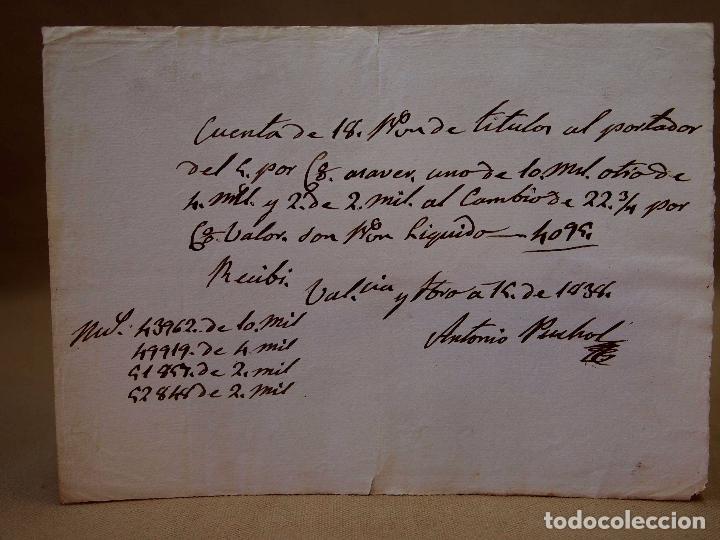 Cuenta de 18. Rs. vn de titulos al portador
del 5. por C/o. asaver. uno de 10. mil. otro de
4. mil. y 2. de 2. mil al Cambio de 22. 3/4 por
C/o. Valor. son Rs. vn Liquido — 4095.
Recibi.
Val.cia y de 1838.
Antonio
Nus. 43962. de 10. mil
49919. de 4 mil
51857. de 2. mil
52845 de 2. mil
todocoleccion
todocoleccion.net